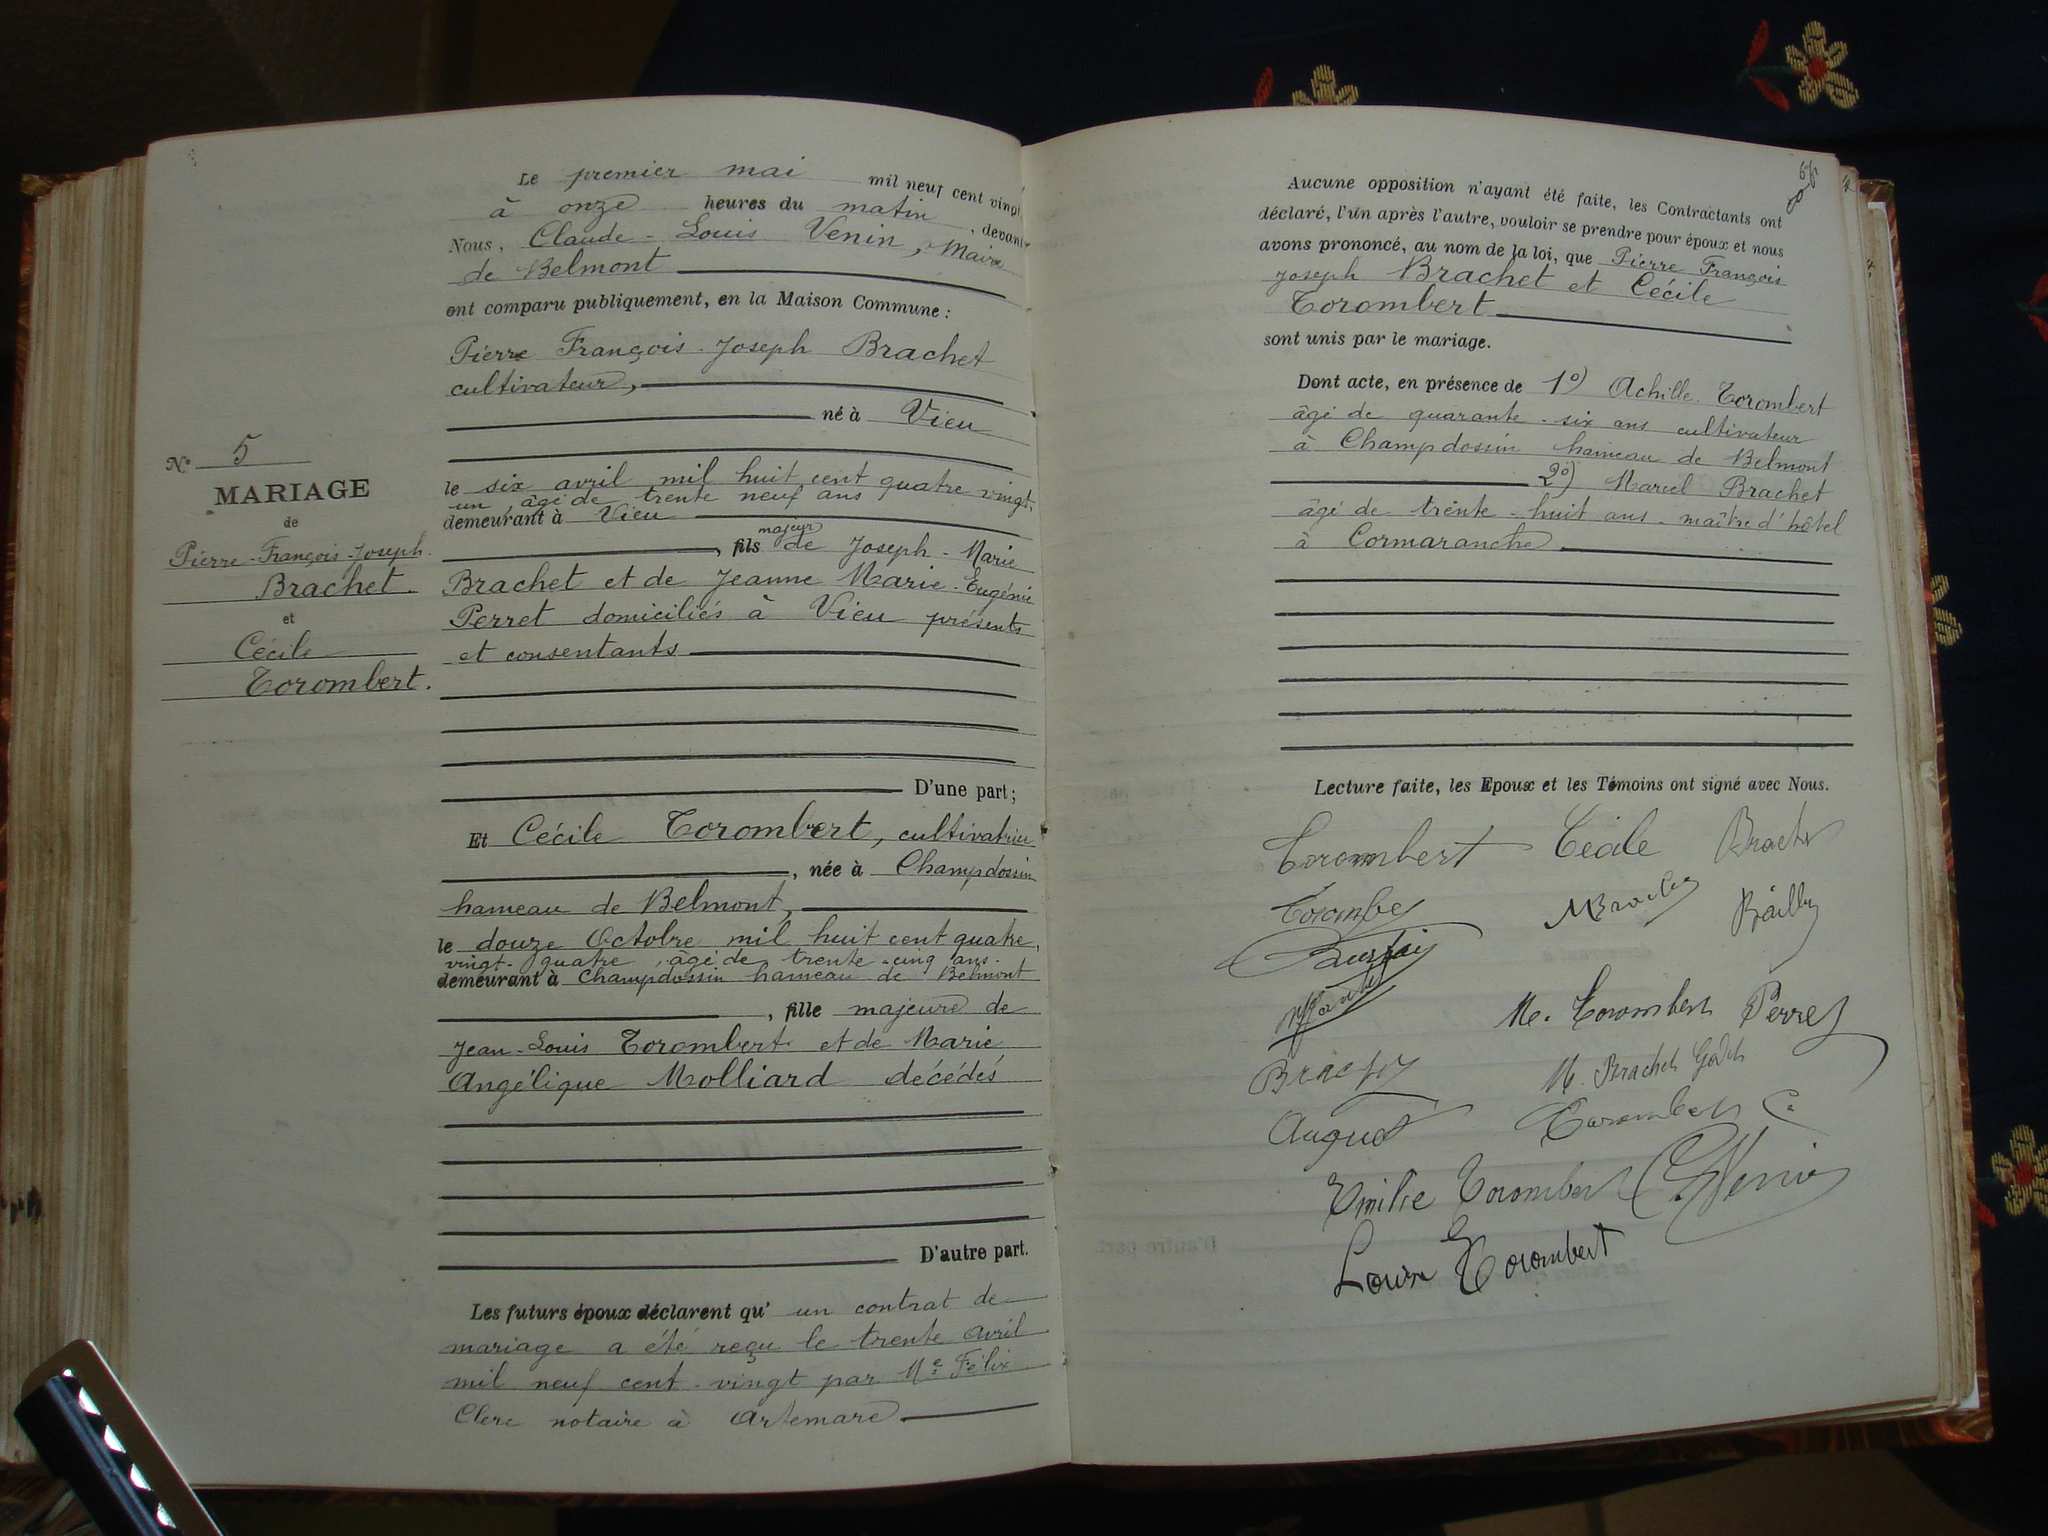 N° 5
MARIAGE
de
Pierre-François-Joseph
Brachet.
et
Cécile
Torombert.
Le premier mai mil neuf cent vingt
à onze heures du matin, devant
Nous, Claude-Louis Venin, Maire
de Belmont
ont comparu publiquement, en la Maison Commune :
Pierre François-Joseph Brachet
cultivateur,
né à Vieu
le six avril mil huit cent quatre vingt-
un, âgé de trente neuf ans
demeurant à Vieu
majeur
, fils de Joseph-Marie
Brachet et de Jeanne Marie-Eugénie
Perret domiciliés à Vieu présents
et consentants
D'une part ;
Et Cécile Torombert, cultivatrice
, née à Champdossin
hameau de Belmont,
le douze Octobre mil huit cent quatre
vingt-quatre, âgé de trente-cinq ans.
demeurant à Champdossin hameau de Belmont
, fille majeure de
Jean-Louis Torombert et de Marie
Angélique Molliard décédés
D'autre part.
Les futurs époux déclarent qu' un contrat de
mariage a été reçu le trente avril
mil neuf cent-vingt par Me Félix
Clerc notaire à Artemare
Aucune opposition n'ayant été faite, les Contractants ont
déclaré, l'un après l'autre, vouloir se prendre pour époux et nous
avons prononcé, au nom de la loi, que Pierre François
Joseph Brachet et Cécile
Torombert
sont unis par le mariage.
Dont acte, en présence de 1°) Achille Torombert
âgé de quarante-six ans cultivateur
à Champdossin hameau de Belmont
2°) Marcel Brachet
âgé de trente-huit ans-maître d'hôtel
à Cormaranche
Lecture faite, les Epoux et les Témoins ont signé avec Nous.
Torombert Cécile Brachet
Torombert Bailly
M. Torombert Perret
M. Brachet
August Torombert C.
Emilie Torombert CLVenin
Louise Torombert